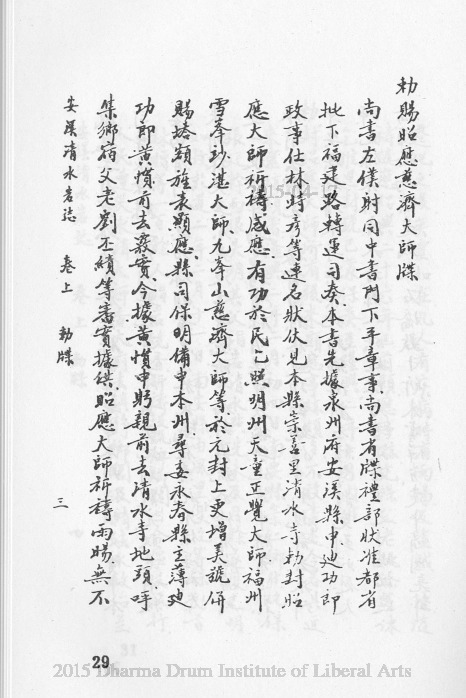 勅賜昭應慈濟大師牒
尚書左僕射同中書門下平章事尚書省牒禮部狀准都省
批下福建路轉運司奏本書先據泉州府安溪縣申迪功郎
政事仕林時彥等連名狀伏見本縣崇善里清水寺勅封昭
應大師祈禱感應有功於民乞照明州天童正覺大師福州
雪峯妙湛大師九峯山慈濟大師等於元封上更增美號併
賜塔額旌表顯應縣司保明備申本州尋委永春縣主薄迪
功郎黃慣前去覈實今據黃慣申躬親前去清水寺地頭呼
集鄉宿父老劉丕績等審實據供昭應大師祈禱雨暘無不
安溪清水岩誌 卷上 勅牒 三
29
2015-04-17
2015 Dharma Drum Institute of Liberal Arts